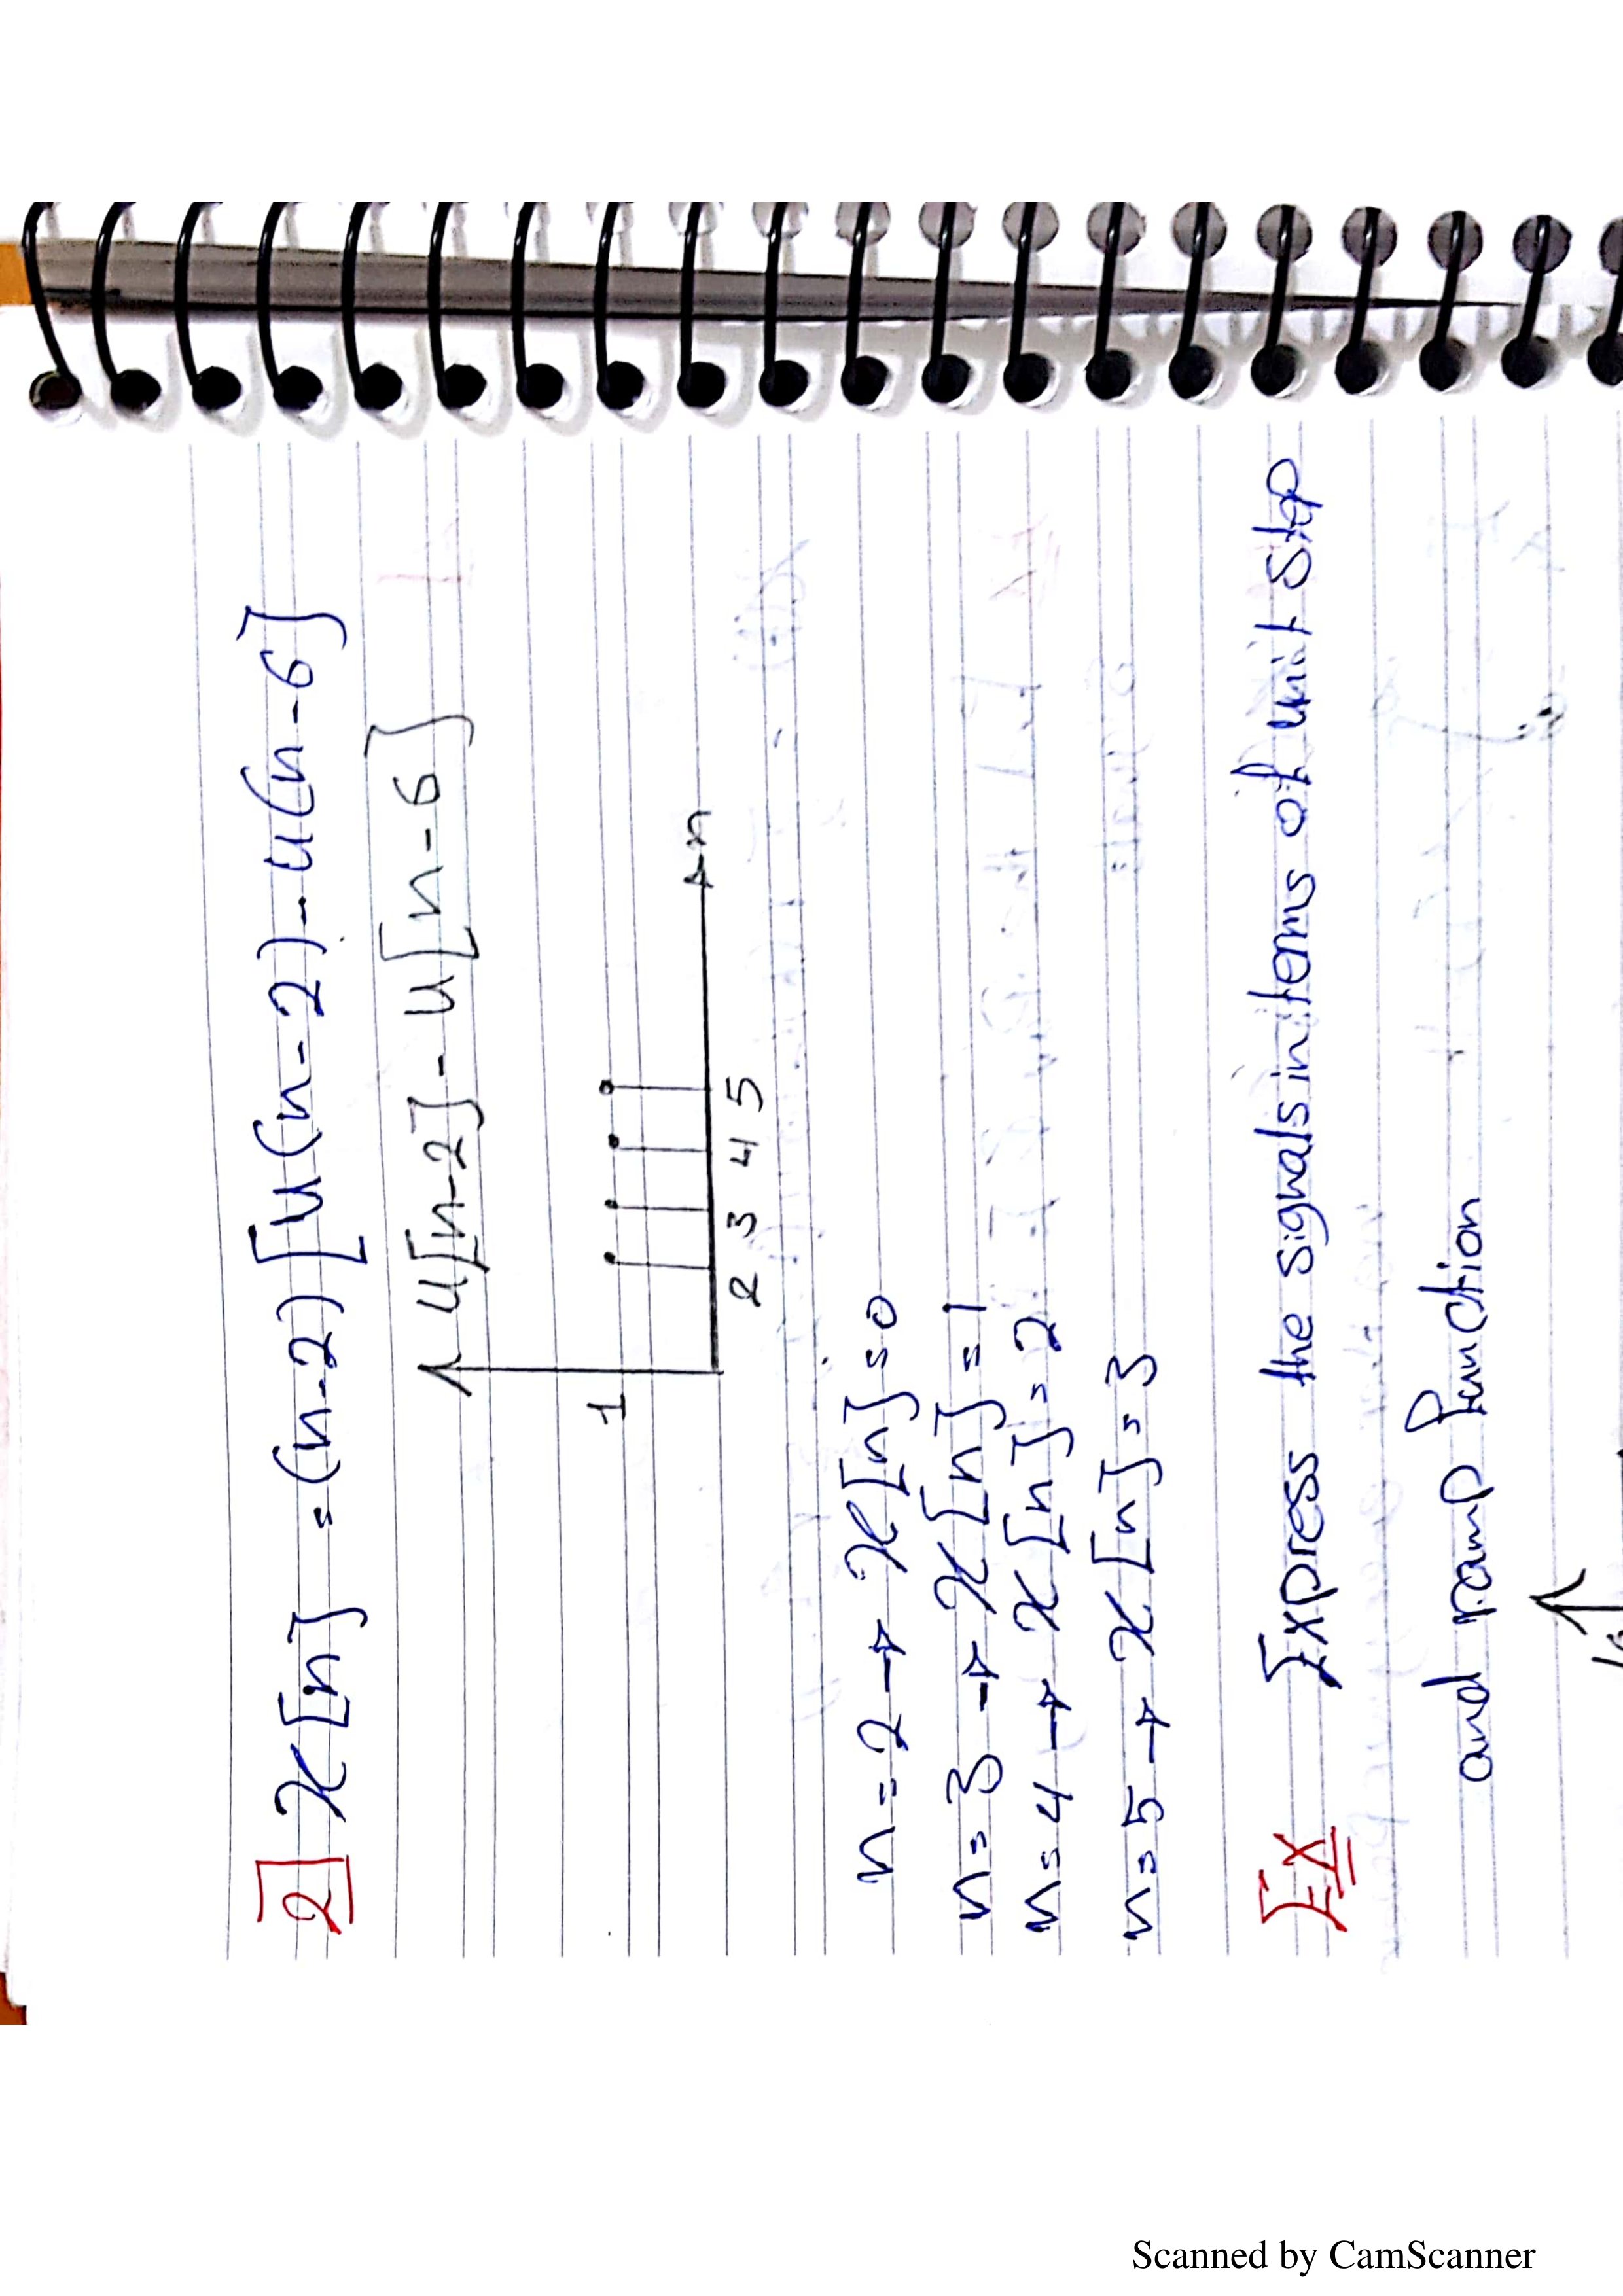 2 x[n] = (n-2) [u(n-2) - u(n-6]
u[n-2] - u[n-6]
1
n
2 3 4 5
n=2 → x[n]=0
n=3 → x[n]=1
n=4 → x[n]=2
n=5 → x[n]=3
Ex Express the signals in terms of unit step
and ramp function
Scanned by CamScanner